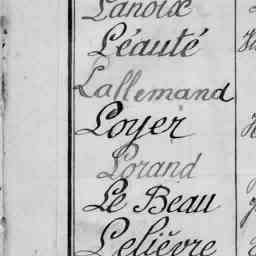 Lanoix
Léauté
Lallemand
Loyer
Lorand
Le Beau
Lelièvre